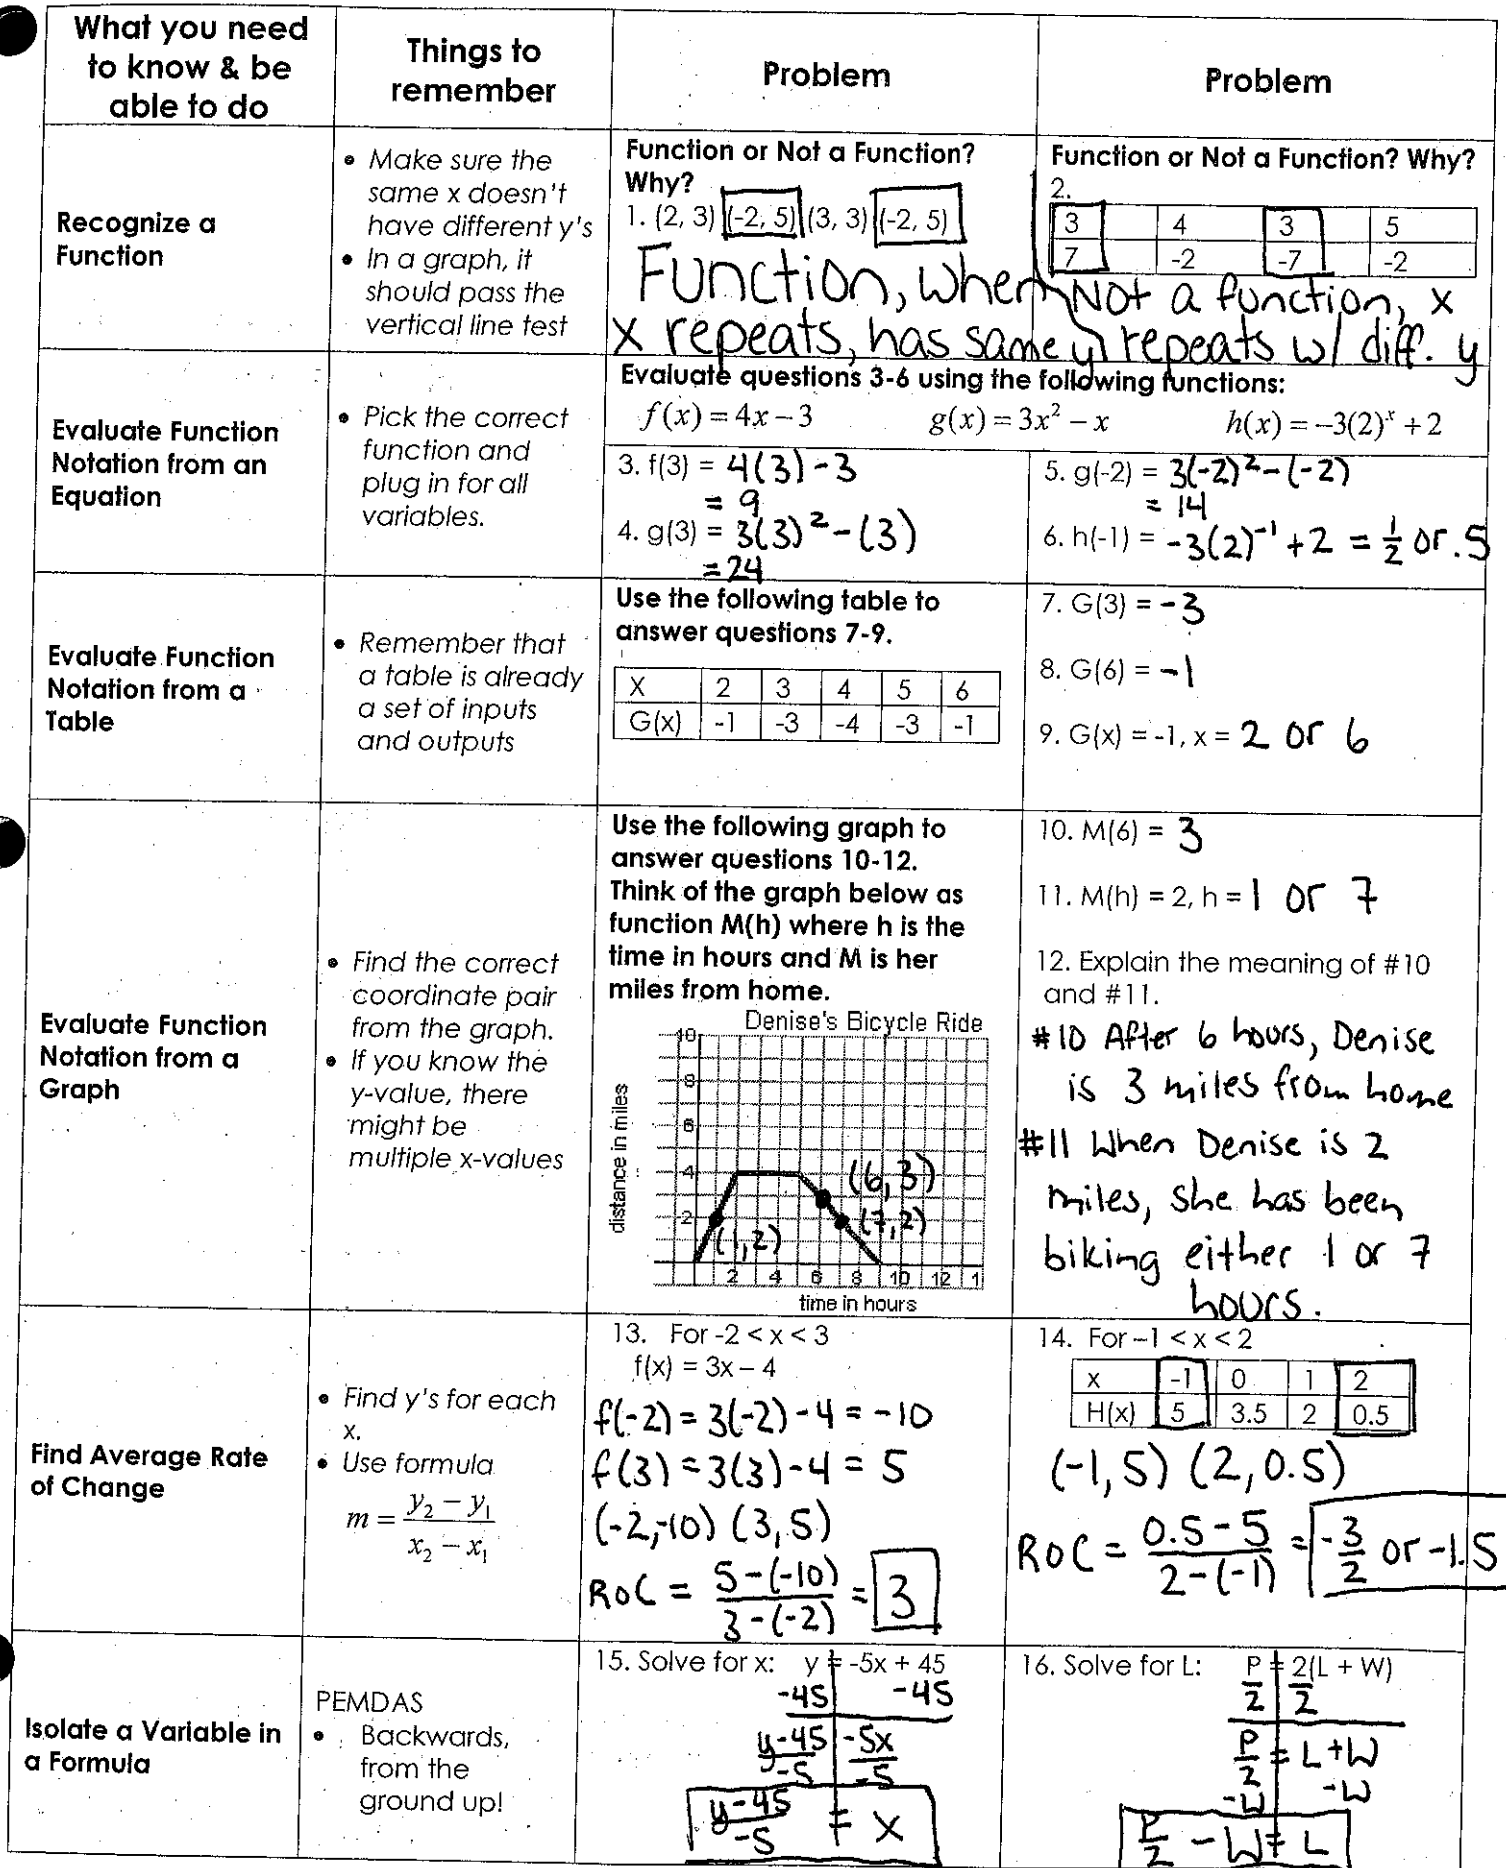 What you need
to know & be
able to do
Things to
remember
Problem
Problem
Recognize a
Function
• Make sure the
same x doesn't
have different y's
• In a graph, it
should pass the
vertical line test
Function or Not a Function?
Why?
1. (2, 3) (-2, 5) (3, 3) (-2, 5)
Function, when
x repeats, has same y
Function or Not a Function? Why?
2.
3 4 3 5
7 -2 -7 -2
Not a function, x
repeats w/ diff. y
Evaluate Function
Notation from an
Equation
• Pick the correct
function and
plug in for all
variables.
Evaluate questions 3-6 using the following functions:
f(x) = 4x − 3 g(x) = 3x² − x h(x) = −3(2)ˣ + 2
3. f(3) = 4(3) - 3
= 9
4. g(3) = 3(3)² - (3)
= 24
5. g(-2) = 3(-2)² - (-2)
= 14
6. h(-1) = -3(2)⁻¹ + 2 = 1/2 or .5
Evaluate Function
Notation from a
Table
• Remember that
a table is already
a set of inputs
and outputs
Use the following table to
answer questions 7-9.
X 2 3 4 5 6
G(x) -1 -3 -4 -3 -1
7. G(3) = -3
8. G(6) = -1
9. G(x) = -1, x = 2 or 6
Evaluate Function
Notation from a
Graph
• Find the correct
coordinate pair
from the graph.
• If you know the
y-value, there
might be
multiple x-values
Use the following graph to
answer questions 10-12.
Think of the graph below as
function M(h) where h is the
time in hours and M is her
miles from home.
Denise's Bicycle Ride
distance in miles
10
8
6
4
2
(6,3)
(7,2)
(1,2)
2 4 6 8 10 12 1
time in hours
10. M(6) = 3
11. M(h) = 2, h = 1 or 7
12. Explain the meaning of #10
and #11.
#10 After 6 hours, Denise
is 3 miles from home
#11 When Denise is 2
miles, she has been
biking either 1 or 7
hours.
Find Average Rate
of Change
• Find y's for each
x.
• Use formula
m = (y₂ − y₁)/(x₂ − x₁)
13. For -2 < x < 3
f(x) = 3x – 4
f(-2) = 3(-2) - 4 = -10
f(3) = 3(3) - 4 = 5
(-2,-10) (3,5)
ROC = (5-(-10))/(3-(-2)) = 3
14. For –1 < x < 2
x -1 0 1 2
H(x) 5 3.5 2 0.5
(-1,5) (2,0.5)
ROC = (0.5-5)/(2-(-1)) = -3/2 or -1.5
Isolate a Variable in
a Formula
PEMDAS
• Backwards,
from the
ground up!
15. Solve for x: y = -5x + 45
-45 -45
y-45 -5x
-5 -5
(y-45)/-5 = x
16. Solve for L: P = 2(L + W)
2 2
P/2 = L + W
-W -W
P/2 - W = L